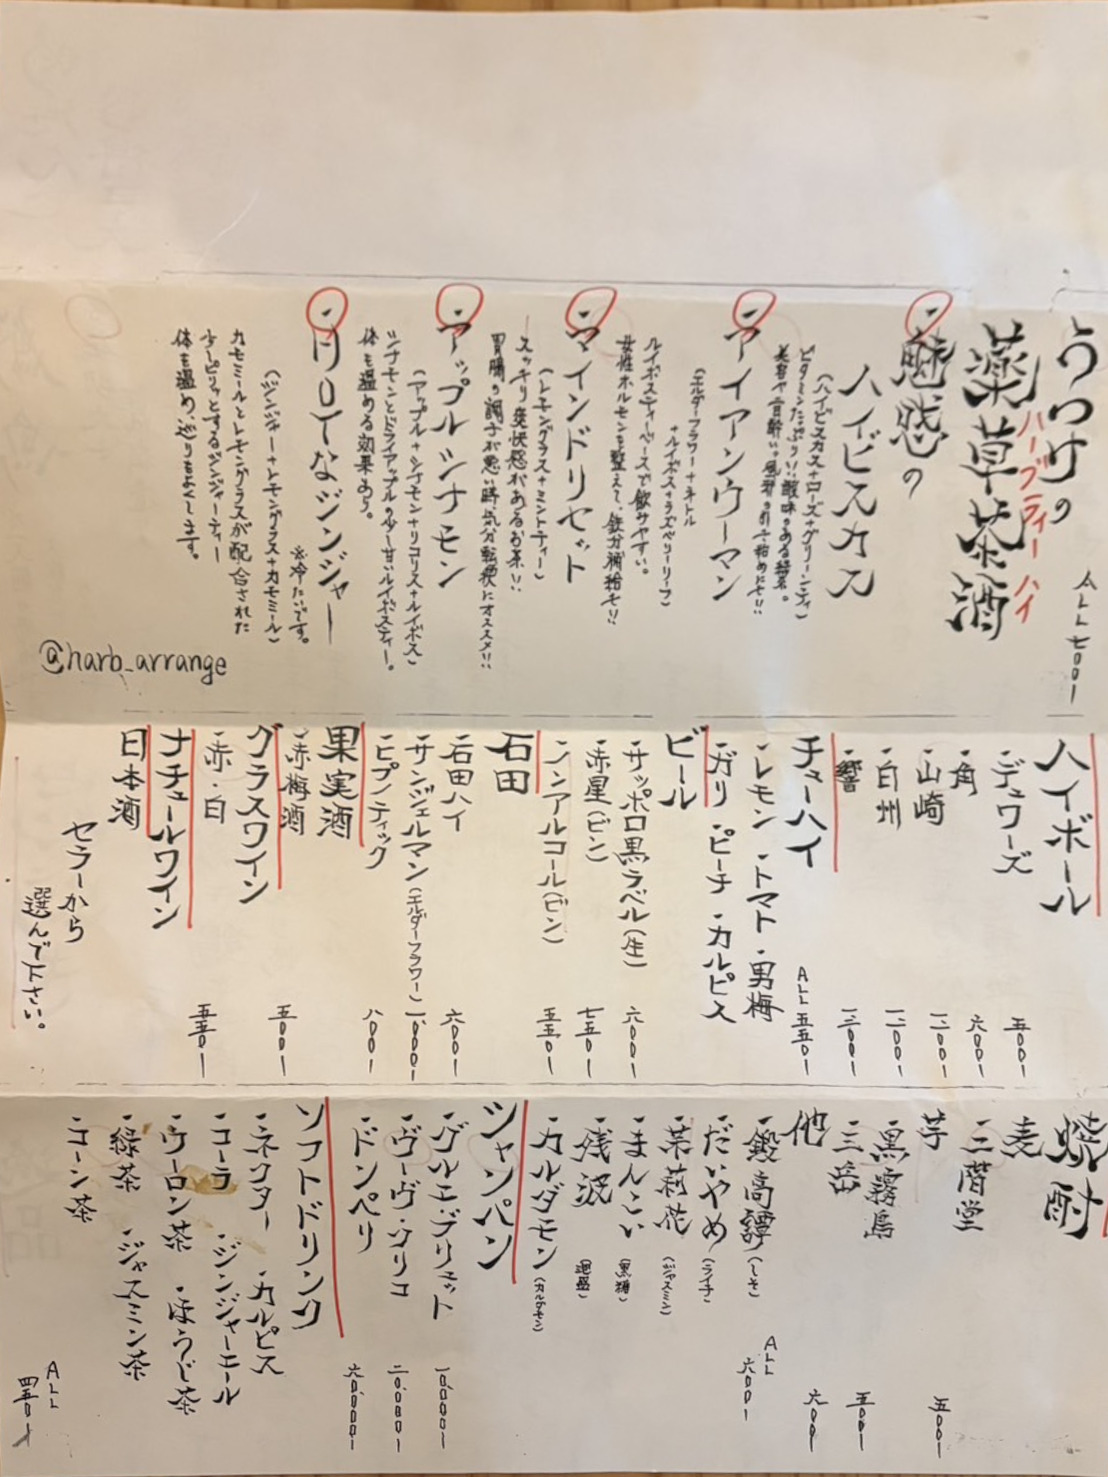 うつけの
薬草茶酒
ハーブティーハイ
ALL 七〇〇
・魅惑の
ハイビスカス
(ハイビスカス+ローズ+グリーンティ)
ビタミンたっぷり!!酸味のある緑茶。
・アイアンウーマン
(エルダーフラワー+ネトル
+ルイボス+ラズベリーリーフ)
ルイボスティーベースで飲みやすい。
女性ホルモンを整えて、鉄分補給も!!
・マインドリセット
(レモングラス+ミントティー)
スッキリ爽快感があるお茶!!
胃腸の調子が悪い時、気分転換にオススメ!!
・アップルシナモン
(アップル+シナモン+リコリス+ルイボス)
シナモンとドライアップルの少し甘いルイボスティー。
体を温める効果あり。
・HOTなジンジャー
※冷たいです。
(ジンジャー+レモングラス+カモミール)
カモミールとレモングラスが配合された
少しピリッとするジンジャーティー
体を温め、巡りをよくします。
@harb_arrange
ハイボール
・デュワーズ 五〇〇
・角 六〇〇
・山崎 一、二〇〇
・白州 一、二〇〇
・響 一、三〇〇
チューハイ ALL 五五〇
・レモン ・トマト ・男梅
・ガリ ・ピーチ ・カルピス
ビール
・サッポロ黒ラベル(生) 六〇〇
・赤星(ビン) 七五〇
・ノンアルコール(ビン) 五五〇
石田
・石田ハイ 六〇〇
・サンジェルマン(エルダーフラワー) 一、〇〇〇
・ヒプノティック 八〇〇
果実酒
・赤梅酒 五〇〇
グラスワイン
・赤・白 五五〇
ナチュールワイン
日本酒
セラーから
選んで下さい。
焼酎
麦
・二階堂 五〇〇
芋
・黒霧島 五〇〇
・三岳 六〇〇
他 ALL 六〇〇
・鍛高譚(しそ)
・だいやめ(ライチ)
・茉莉花(ジャスミン)
・まんこい(黒糖)
・残波(泡盛)
・カルダモン(カルダモン)
シャンパン
・グルエ・ブリュット 一〇、〇〇〇
・ヴーヴ・クリコ 二〇、〇〇〇
・ドンペリ 六〇、〇〇〇
ソフトドリンク ALL 四五〇
・ネクター ・カルピス
・コーラ ・ジンジャーエール
・ウーロン茶 ・ほうじ茶
・緑茶 ・ジャスミン茶
・コーン茶